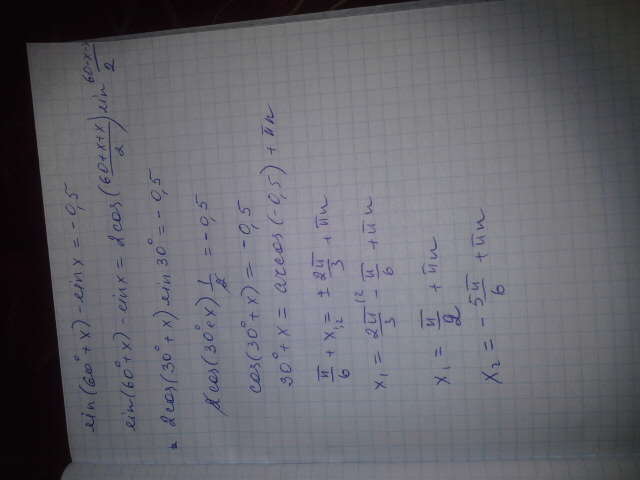 sin(60° + x) - sin x = - 0,5
sin(60° + x) - sin x = 2cos(\frac{60+x+x}{2}) sin \frac{60-x-x}{2}
2cos(30° + x) sin 30° = - 0,5
2cos(30° + x) \frac{1}{2} = - 0,5
cos(30° + x) = - 0,5
30° + x = arcos(-0,5) + πn
\frac{π}{6} + x_{1,2} = ± \frac{2π}{3} + πn
x_1 = \frac{2π}{3}^{(2} - \frac{π}{6} + πn
x_1 = \frac{π}{2} + πn
x_2 = - \frac{5π}{6} + πn